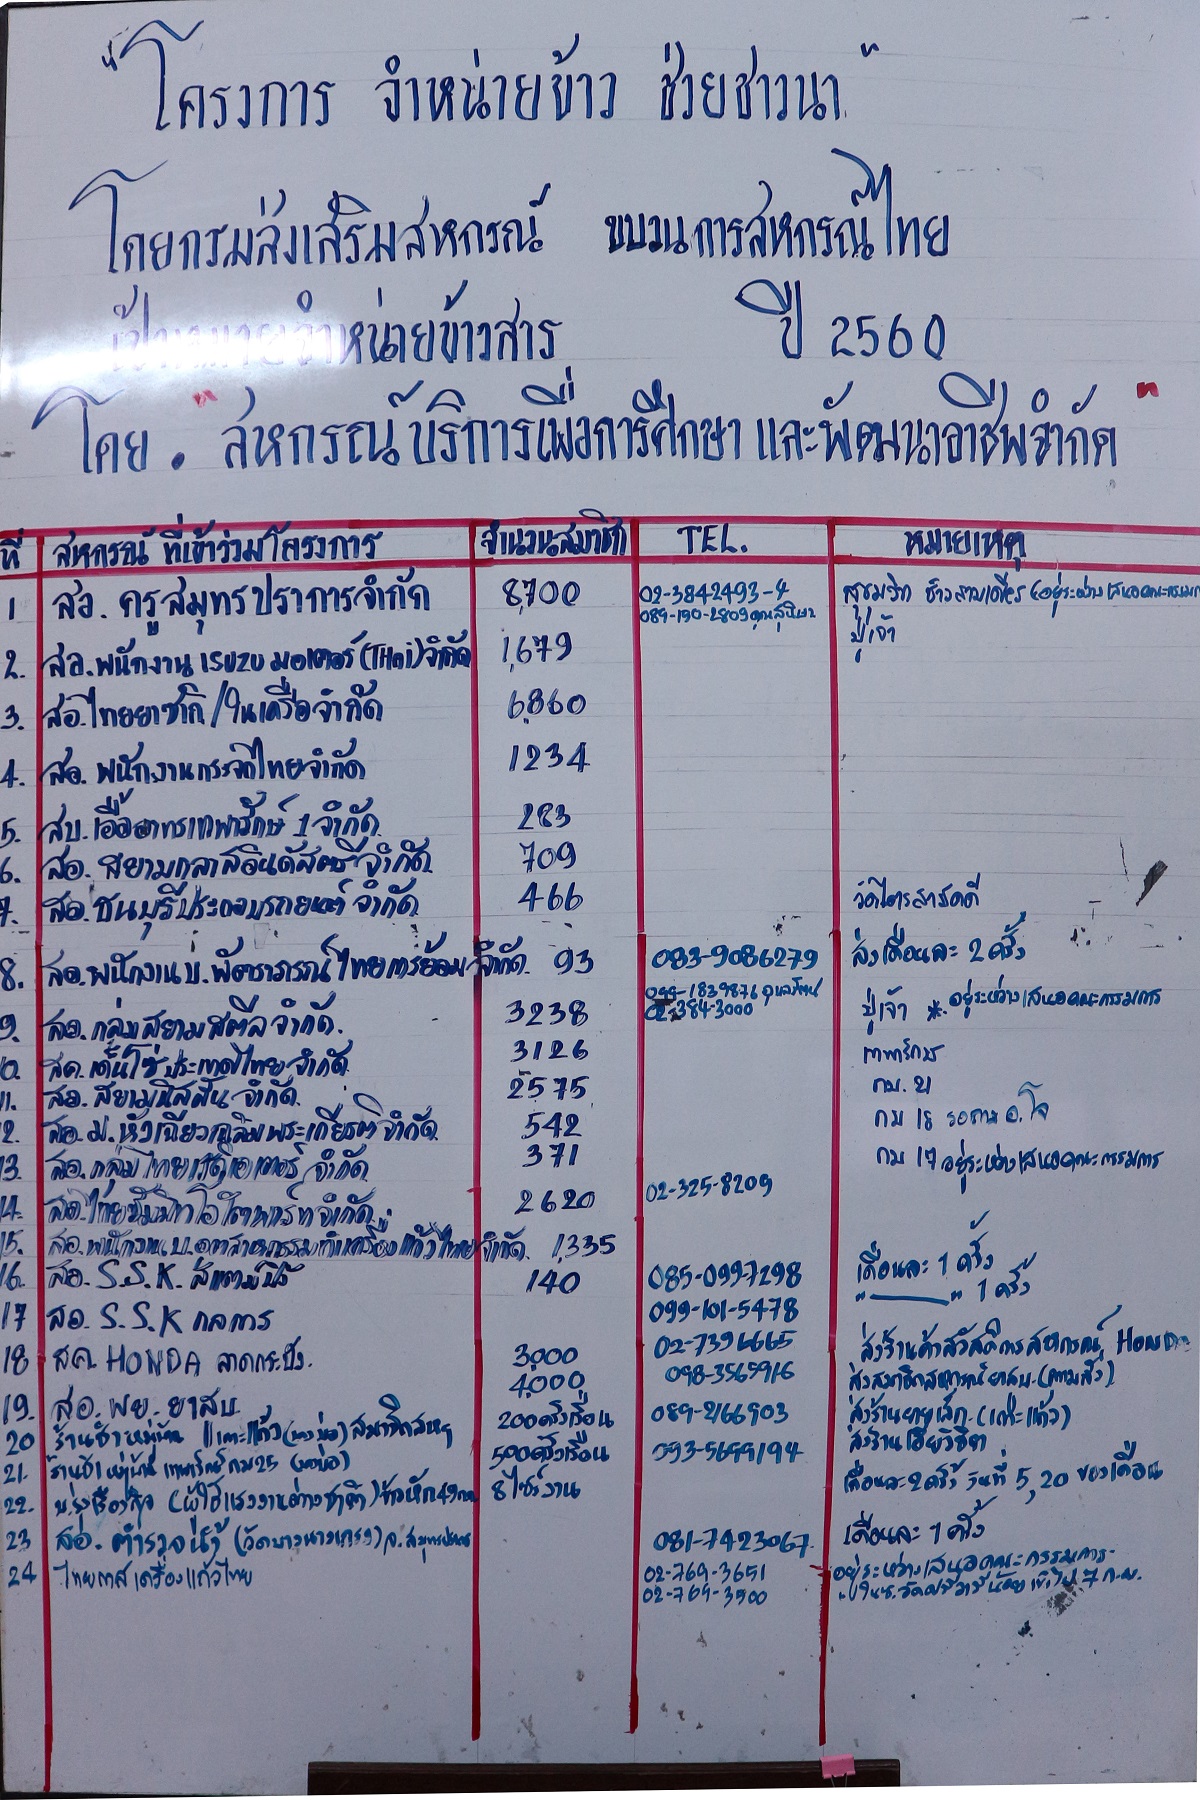 "โครงการ จำหน่ายข้าว ช่วยชาวนา"
โดยกรมส่งเสริมสหกรณ์ ขบวนการสหกรณ์ไทย
เป้าหมายจำหน่ายข้าวสาร ปี 2560
โดย. "สหกรณ์บริการเพื่อการศึกษา และพัฒนาอาชีพจำกัด"
ที่ สหกรณ์ ที่เข้าร่วมโครงการ จำนวนสมาชิก TEL. หมายเหตุ
1 สอ. ครูสมุทรปราการจำกัด 8,700 02-3842493-4 สุขุมวิท
089-190-2809 ปู่เจ้า
2. สอ.พนักงาน ISUZU มอเตอร์(THai)จำกัด 1,679
3. สอ.ไทยยาซากิ/ในเครือจำกัด 6,860
4. สอ. พนักงานกระจกไทยจำกัด 1234
5. สบ.เอื้ออาทรเทพารักษ์ 1 จำกัด 283
6. สอ. สยามกลาสอินดัสตรี จำกัด. 709
7. สอ.ธนบุรีประกอบรถยนต์ จำกัด. 466 วัดไตรสามัคคี
8. สอ.พนักงาน บ.พัตราภรณ์ไทยการย้อม จำกัด. 93 083-9086279 ส่งเดือนละ 2 ครั้ง
9. สอ.กลุ่มสยามสตีล จำกัด. 3238 02-384-3000 ปู่เจ้า *.อยู่ระหว่างเสนอคณะกรรมการ
10. สค.เด็นโซ่ ประเทศไทย จำกัด. 3126 เทพารักษ์
11. สอ. สยามนิสสัน จำกัด. 2575 กม. 21
12. สอ.ม.หัวเฉียวเฉลิมพระเกียรติ จำกัด. 542 กม 18 รอถาม อ.โจ
13. สอ.กลุ่มไทย จำกัด. 371 กม 17 อยู่ระหว่างเสนอคณะกรรมการ
14. สอ.ไทยซัมมิทโอโตพาร์ท จำกัด. 2620 02-325-8209
15. สอ.พนักงาน บ.อุตสาหกรรมทำเครื่องแก้วไทย จำกัด. 1,335
16. สอ. S.S.K. 140 085-0997298 เดือนละ 1 ครั้ง
17 สอ. S.S.K กลการ 099-101-5478 " " 1 ครั้ง
18 สค. HONDA ลาดกระบัง. 3,000 02-7396665 ส่งร้านค้าสวัสดิการสหกรณ์ HONDA
19. สอ. พย. ยาสูบ 4,000 098-3565916 ส่งสมาชิกสหกรณ์ยาสูบ (ตามสั่ง)
20 ร้านข้าวหมู่บ้าน แกะแก้ว (บางบ่อ) 200 ครัวเรือน 089-2166903 ส่งร้านยายเล็ก (เกาะแก้ว)
21. หมู่บ้าน เทพารักษ์ กม 25 (บางบ่อ) 500 ครัวเรือน 093-5699194 ส่งร้านเฮียวิชิต
22. บ.รุ่งเรืองกิจ (ผู้ใช้แรงงานต่างชาติ) 8 ไซร์งาน เดือนละ 2 ครั้ง วันที่ 5, 20 ของเดือน
23 สอ. ตำรวจน้ำ (วัดบางนางเกรง) จ.สมุทรปราการ 081-7423067 เดือนละ 1 ครั้ง
24 ไทยกลาสเครื่องแก้วไทย 02-769-3651 อยู่ระหว่างเสนอคณะกรรมการ
02-769-3500